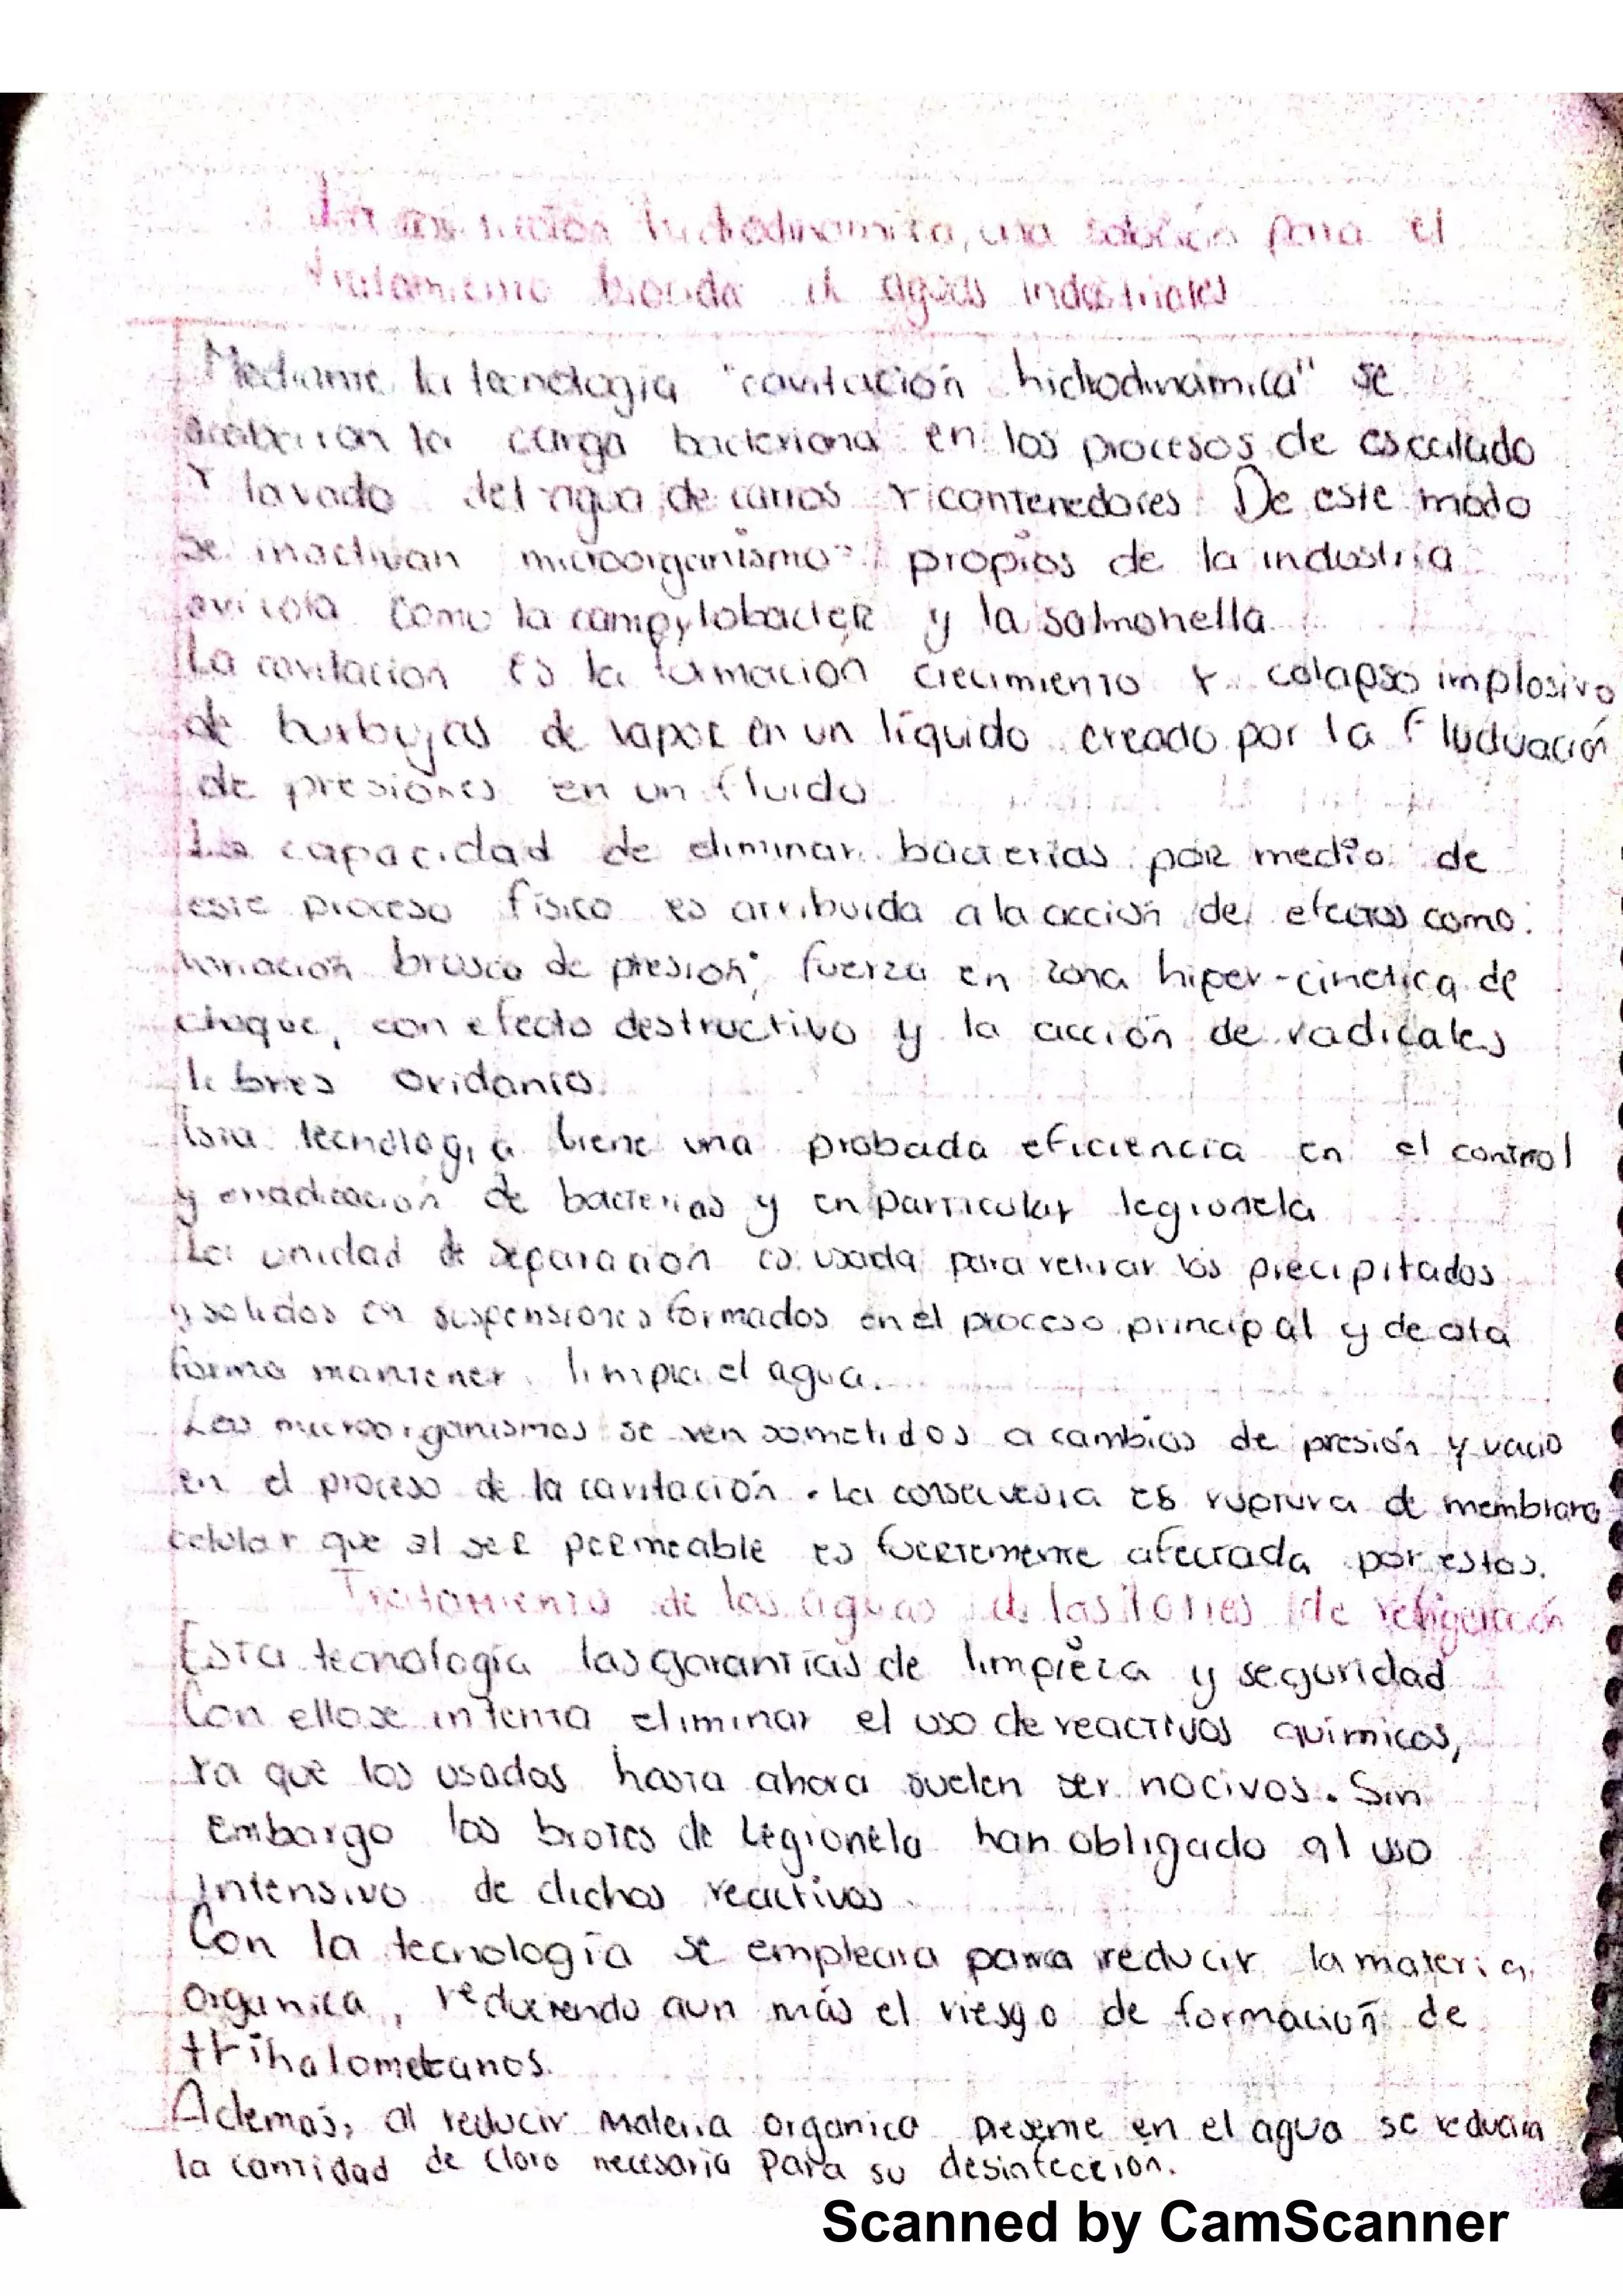 hidrodinamica, una solución para el
tratamiento biocida de aguas industriales
Mediante la tecnologia "cavitación hidrodinámica" se
la carga bacteriana en los procesos de escalado
Y lavado del agua de carros Y contenedores De este modo
se inactivan microorganismos propios de la industria
avicola como la campylobacter y la salmonella.
La cavitación es la formación crecimiento Y colapso implosivo
de burbujas de vapor en un líquido creado por la Fluduación
de presiones en un fluido
La capacidad de eliminar bacterias por medio de
este proceso físico es atribuida a la acción de efectos como:
variación brusca de presión; fuerza en zona hiper-cinetica de
choque, con efecto destructivo y la acción de radicales
libres oxidantes.
Esta tecnología tiene una probada eficiencia en el control
y erradicación de bacterias y en particular legionela
La unidad de separación es usada para retirar los precipitados
y solidos en suspensiones formados en el proceso principal y de esta
forma mantener limpia el agua.
Los microorganismos se ven sometidos a cambios de presión y vacio
en el proceso de la cavitación. La consecuesia es ruptura de membrana
celular que al ser permeable es fuertemente afectada por estos.
Tratamiento de las aguas de las torres de refigeración
Esta tecnología las garantías de limpieza y seguridad
Con ello se intenta eliminar el uso de reactivos químicos,
ya que los usados hasta ahora suelen ser nocivos. Sin
Embargo los brotes de Legionela han obligado al uso
intensivo de dichos reactivos.
Con la tecnología se empleara para reducir la materia
organica, reduciendo aun más el riesgo de formación de
trihalometanos.
Ademas, al reducir materia organica presente en el agua se reducira
la cantidad de cloro necesaria para su desinfección.
Scanned by CamScanner